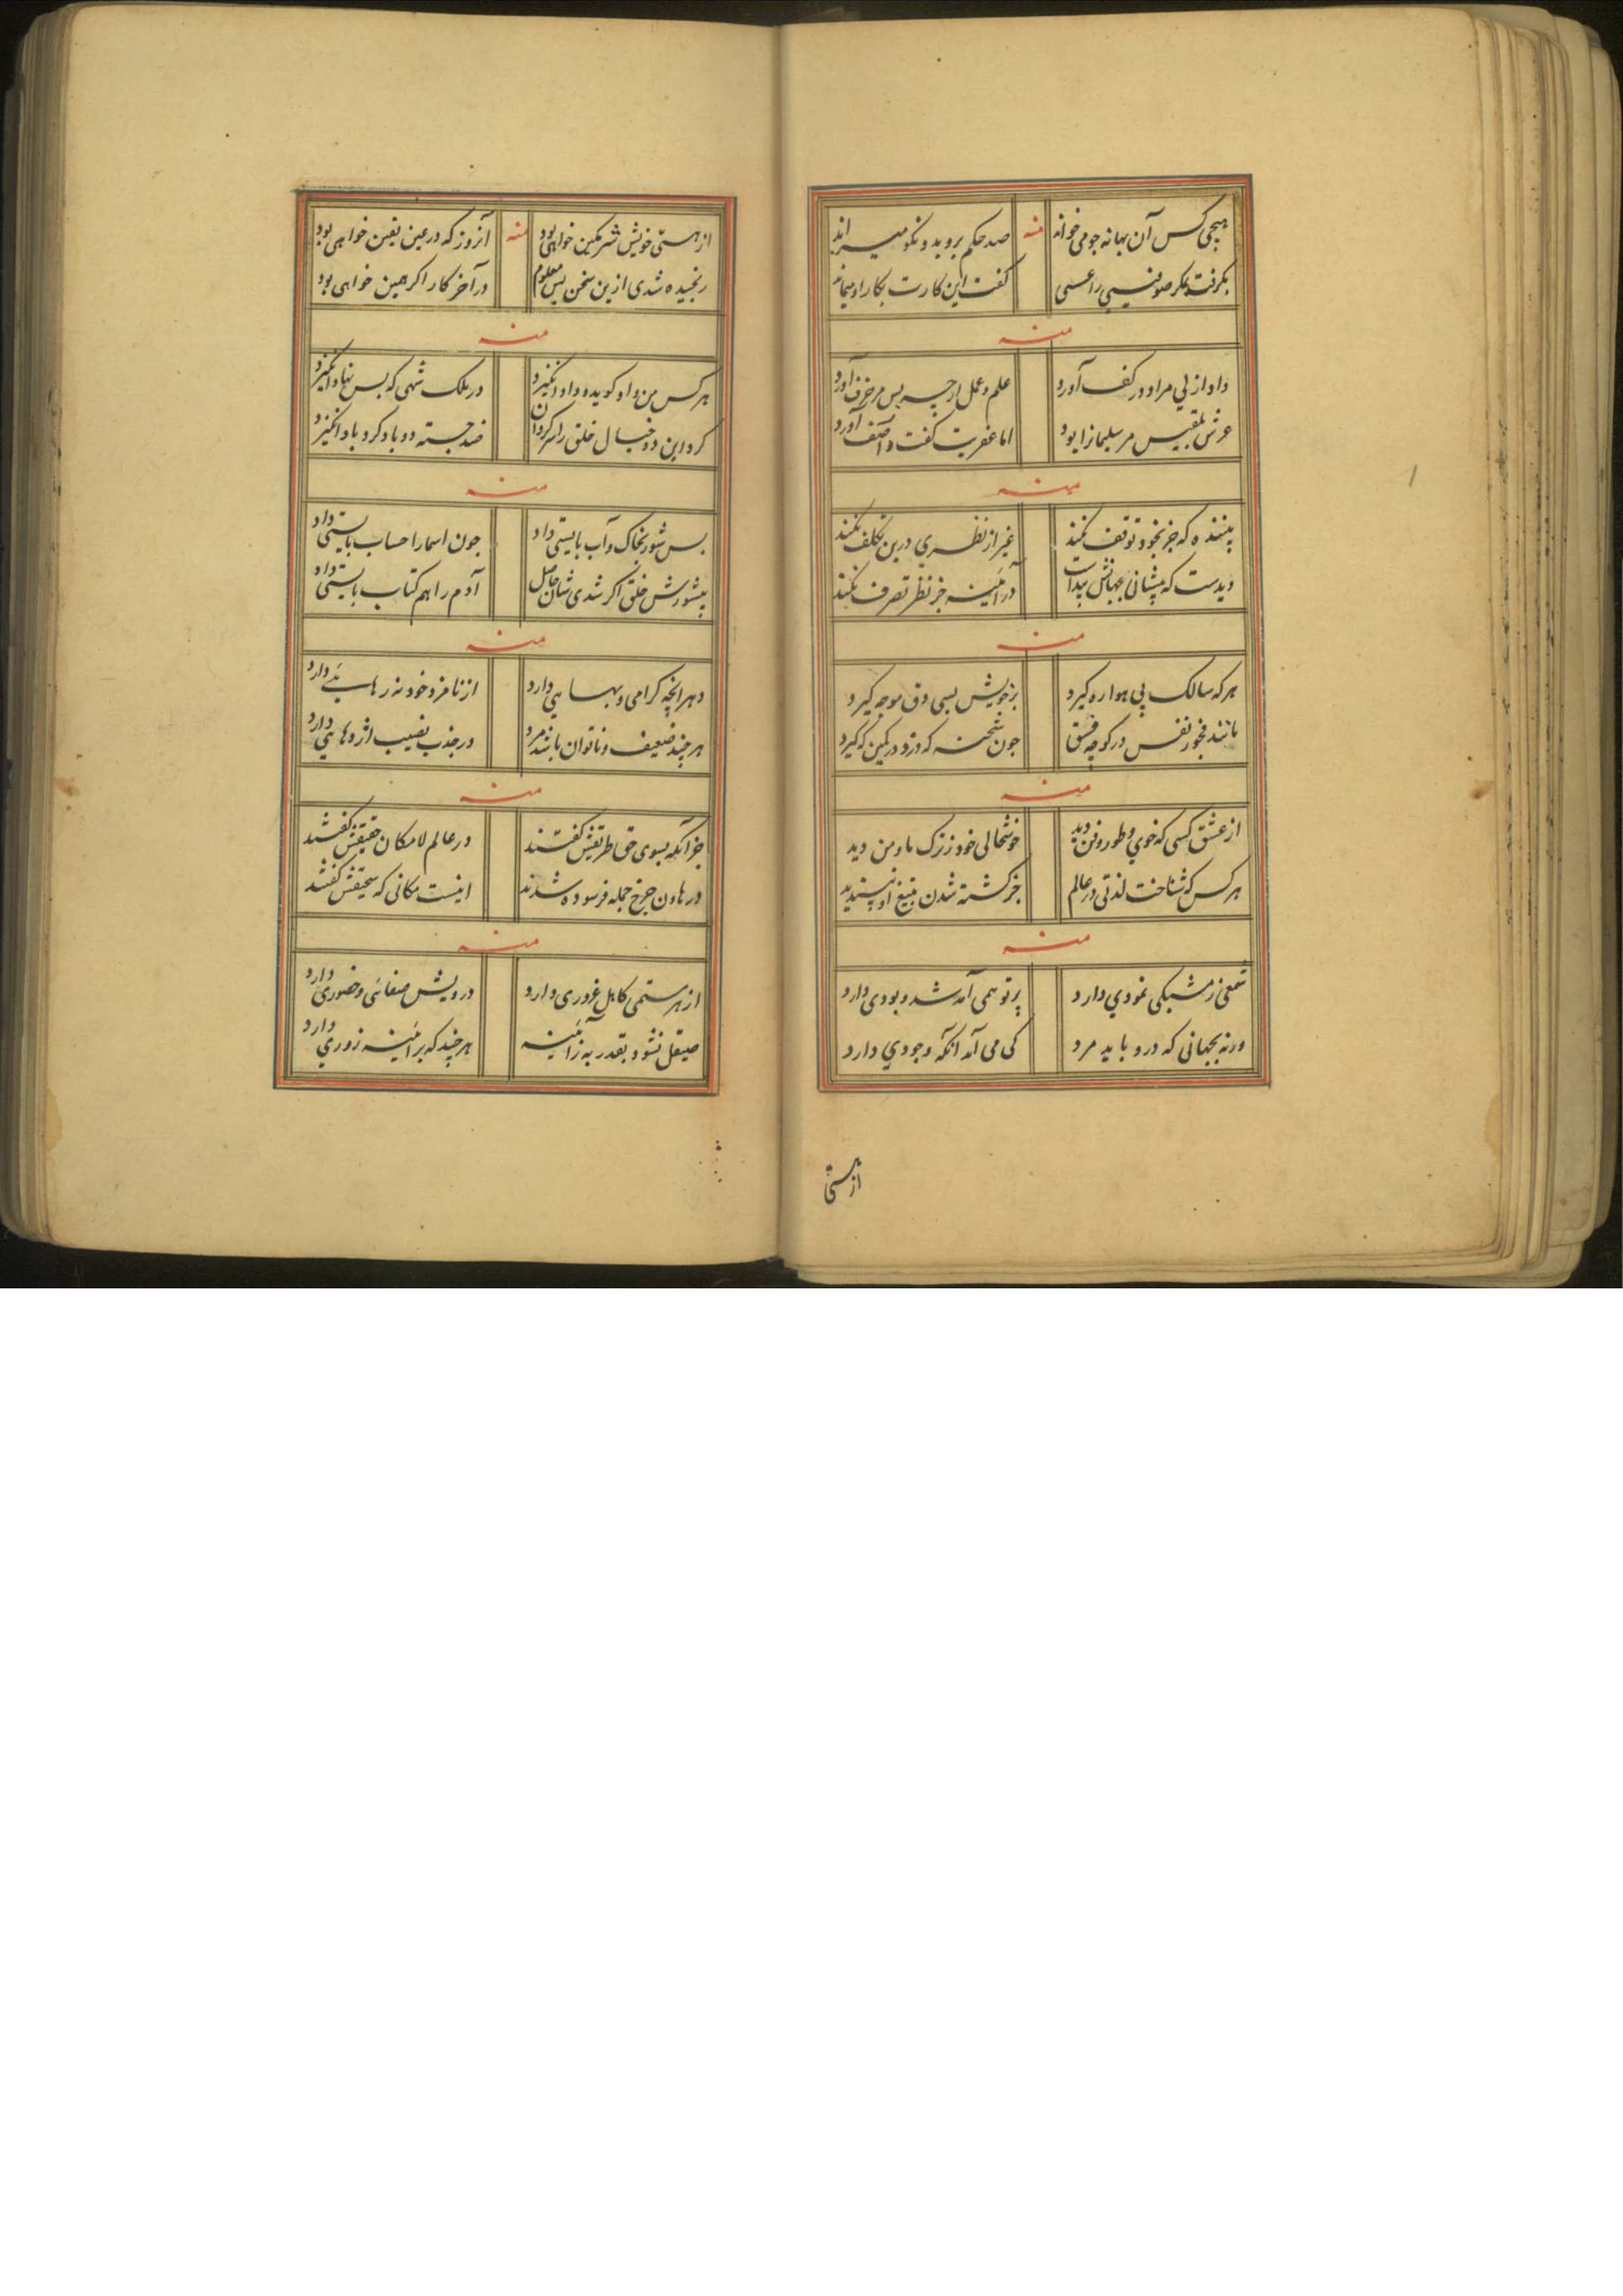 هیچی کس آن بهانه جو می خواند منه صد حکم بروبد و نکو میراند
بگرفت عسسی را گفت این کارت بکار او میماند
منه
داد ازلی مراد در کف آورد علم و عمل ارچه بس مزخرف آورد
عرش بلقیس مر سلیمانرا بود اما عفریت گفت و آصف آورد
منه
بیننده که جز بخود توقف نکند غیر از نظری درین تکلف نکند
دیدست که پیشانی جهانش پیداست در آئینه جز نظر تصرف نکند
منه
هر که سالک پی هوا ره گیرد بر خویش بسی دق موجه گیرد
مانند فجور نفس در کوچه فسق چون شحنه که دزد در کمین که گیرد
منه
از عشق کسی که خوی و طور و فن دید خوشحالی خود ز ترک ما و من دید
هر کس که شناخت لذتی در عالم جز کشته شدن بتیغ او نپسندید
منه
شمعی ز مشبکی نمودی دارد پرتو همی آمد شد و بودی دارد
ورنه بجهانی که درو باید مرد کی می آمد آنکه وجودی دارد
از هستی
از هستی خویش شرمگین خواهی بود منه آنروز که در عین یقین خواهی بود
رنجیده شدی ازین سخن پس معلوم در آخر کار اگر همین خواهی بود
منه
هر کس من و او گوید و داد انگیزد در ملک شهی که بس نهاد انگیزد
کرد این دو خیال خلق را سرگردان ضد جسته دو باد گرد باد انگیزد
منه
بس شور بخاک و آب بایستی داد چون اسما را حساب بایستی داد
بیشورش خلق اگر شدی شان حاصل آدم را هم کتاب بایستی داد
منه
دهر آنچه گرامی و بهایی دارد از نامزد خود نه رهایی دارد
هر چند ضعیف و ناتوان باشد مرد در جذب نصیب اژدهایی دارد
منه
جز آنکه بسوی حق طریقش گفتند در عالم لامکان حقیقش گفتند
در هاون چرخ جمله فرسوده شدند اینست مکانی که سحیقش گفتند
منه
از هر ستمی کاهل غروری دارد درویش صفائی و حضوری دارد
صیقل نشود بقدر به ز آئینه هر چند که بر آئینه زوری دارد